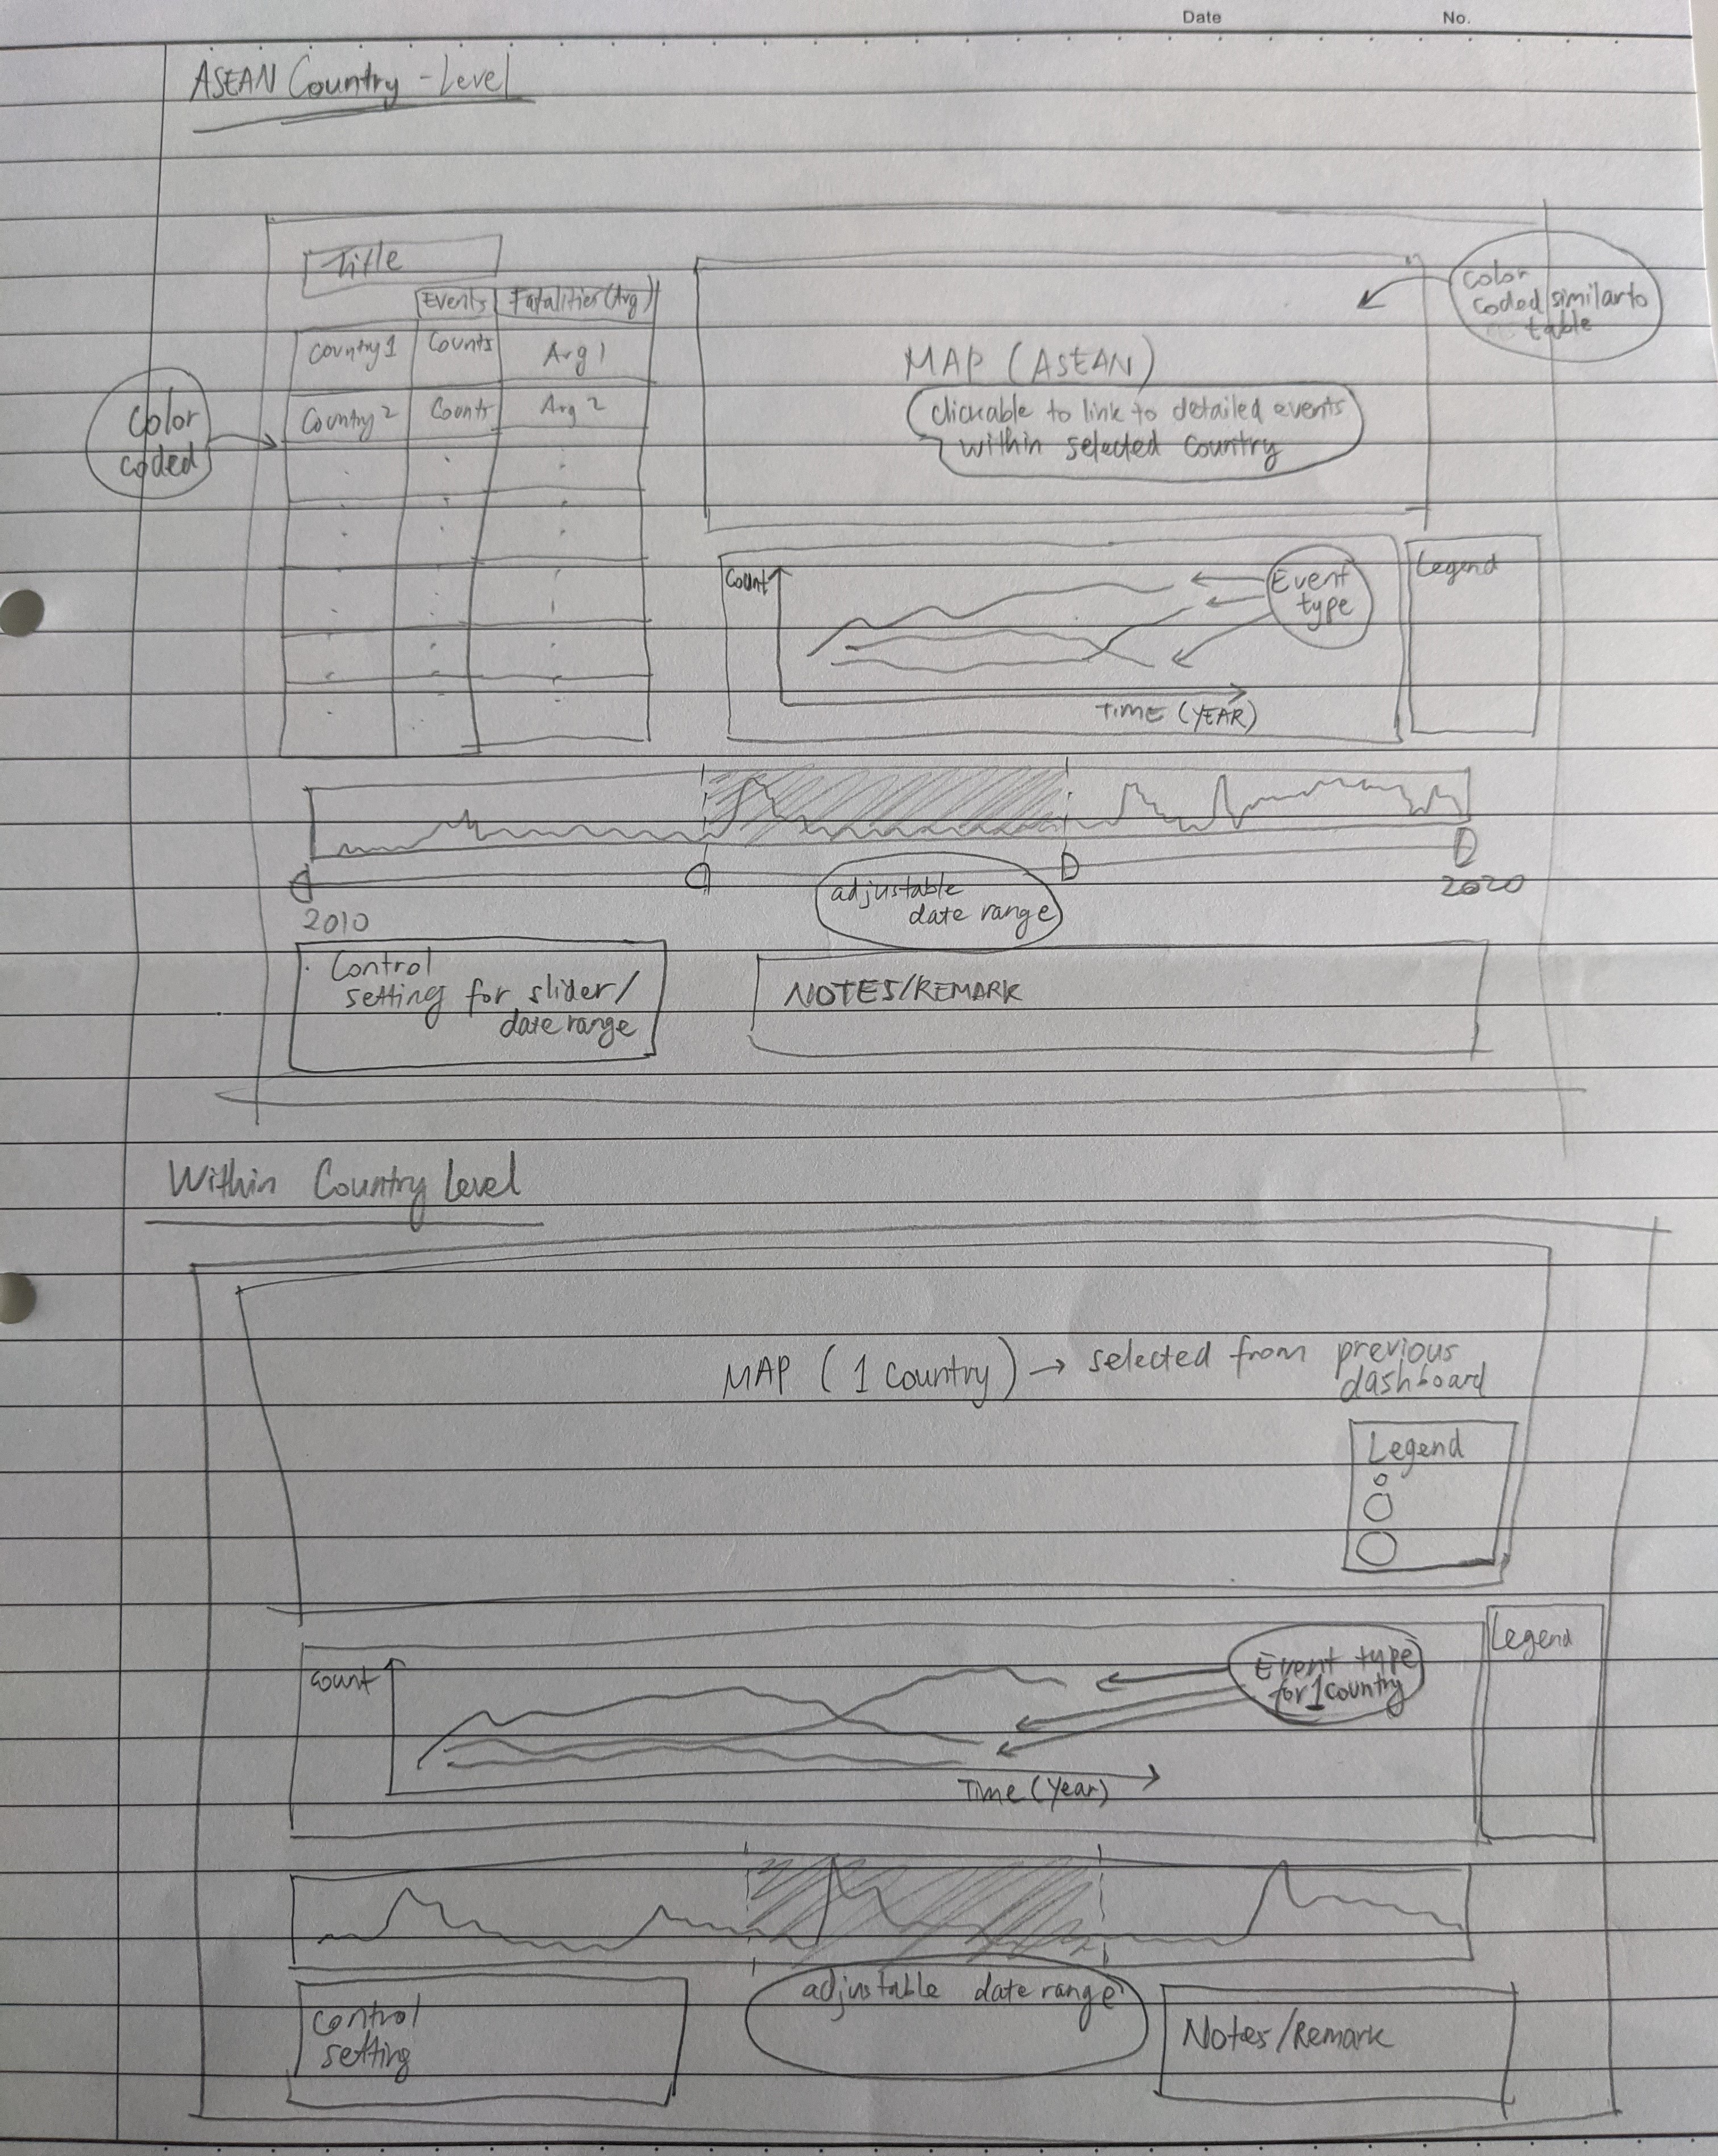 Date No.
ASEAN Country-Level
Title
Events Fatalities (Avg)
Country 1 Counts Avg 1
Country 2 Counts Avg 2
color
coded
MAP (ASEAN)
clickable to link to detailed events
within selected country
color
coded similar to
table
Count
Event
type
TIME (YEAR)
Legend
2010
adjustable
date range
2020
Control
setting for slider/
date range
NOTES/REMARK
Within Country Level
MAP ( 1 Country) → selected from previous
dashboard
Legend
Count
Event type
for 1 country
Time (Year)
Legend
adjustable date range
Control
setting
Notes/Remark